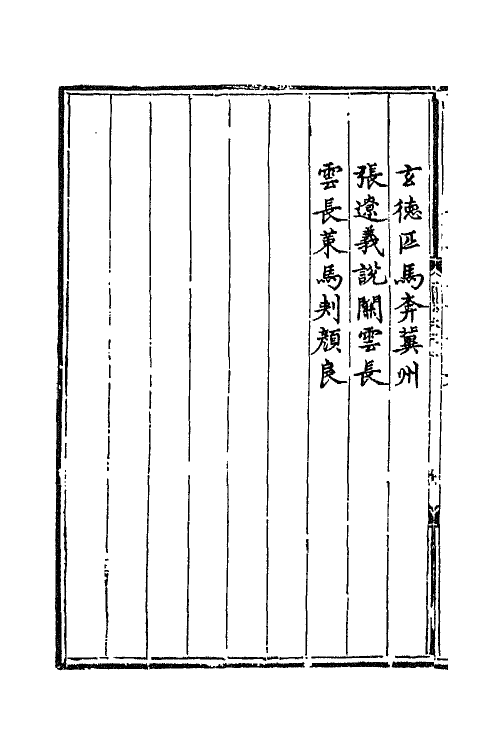 玄德匹馬奔冀州
張遼義說關雲長
雲長策馬刺顏良